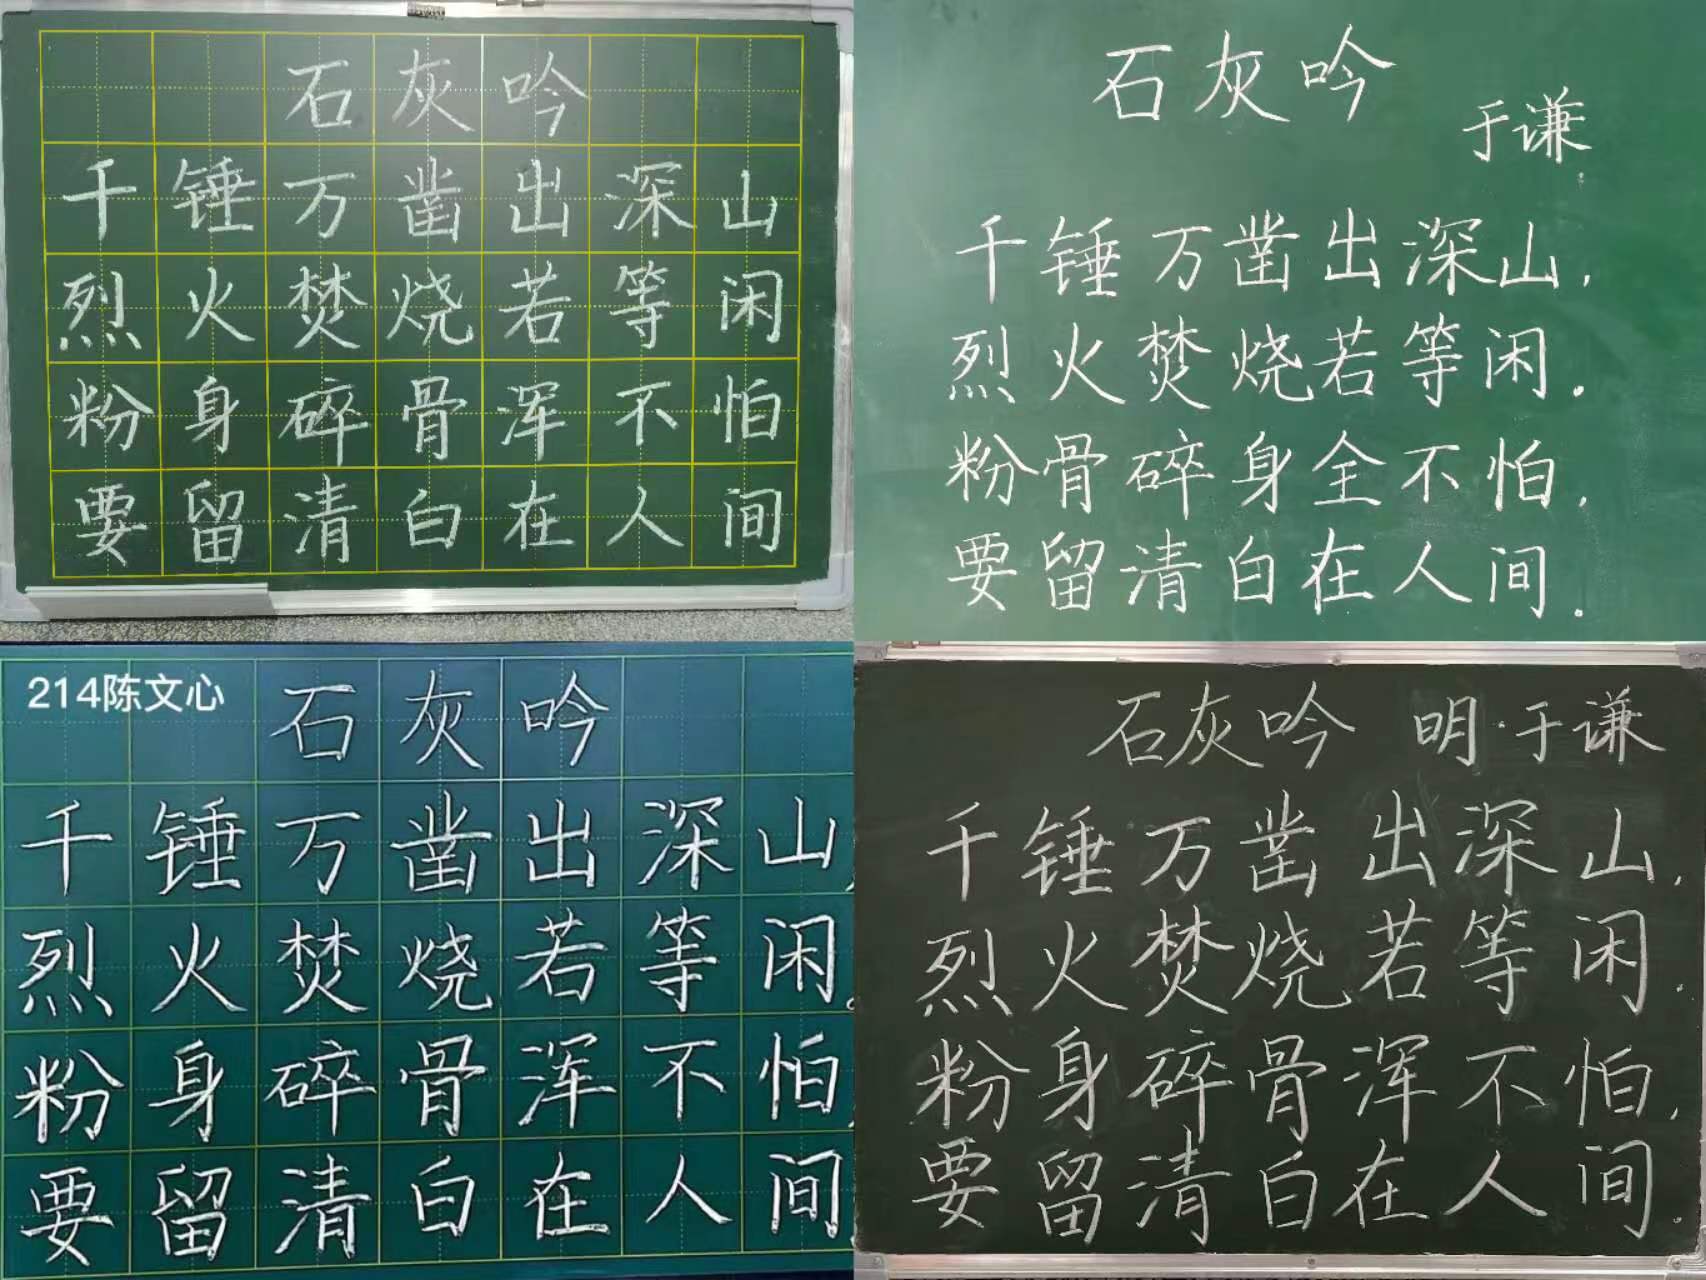 石灰吟
千锤万凿出深山
烈火焚烧若等闲
粉身碎骨浑不怕
要留清白在人间
石灰吟
于谦
千锤万凿出深山，
烈火焚烧若等闲．
粉骨碎身全不怕，
要留清白在人间．
214陈文心
石灰吟
千锤万凿出深山，
烈火焚烧若等闲。
粉身碎骨浑不怕，
要留清白在人间
石灰吟 明·于谦
千锤万凿出深山，
烈火焚烧若等闲．
粉身碎骨浑不怕，
要留清白在人间．